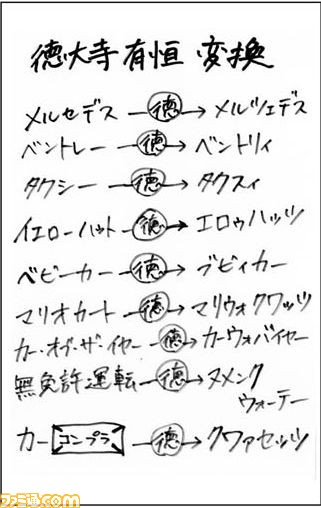 徳大寺有恒 変換
メルセデス—徳→メルツェデス
ベントレー—徳→ベントリィ
タクシー—徳→タクスィ
イエローハット—徳→エロゥハッツ
ベビーカー—徳→ブビィカー
マリオカート—徳→マリウォクワッツ
カー・オブ・ザ・イヤー—徳→カーウォバイヤー
無免許運転—徳→ヌメンク
ウォーテー
カー コンプラ—徳→クワァセッツ
ファミ通com